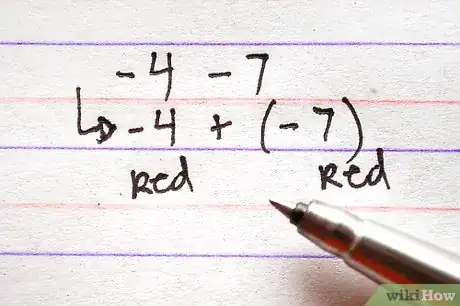 -4 - 7
-4 + (-7)
Red Red
wikiHow